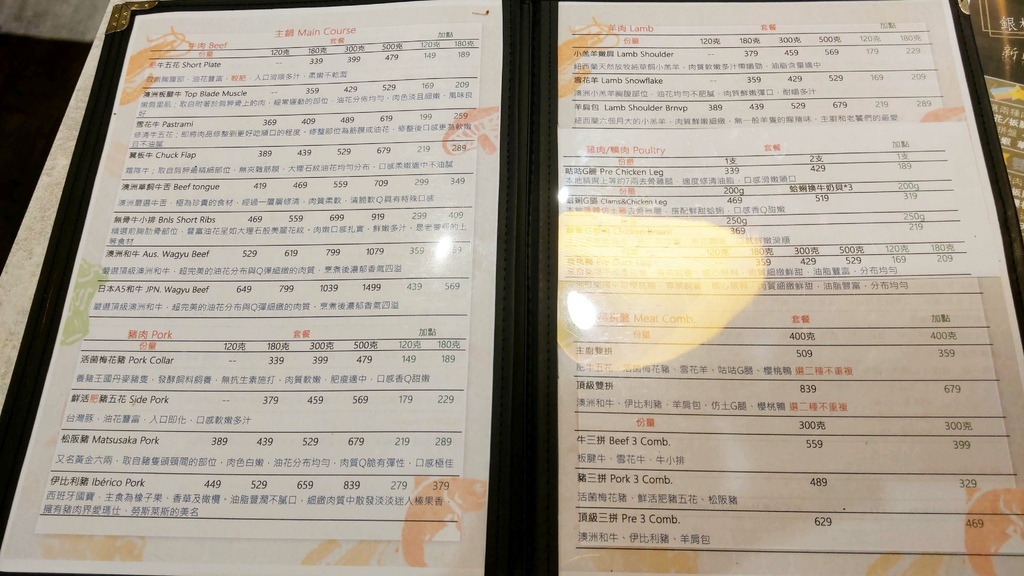 主鍋 Main Course
牛肉 Beef 套餐 加點
份量 120克 180克 300克 500克 120克 180克
牛五花 Short Plate -- 339 399 479 149 189
油花豐富,較肥,入口滑順多汁,柔嫩不乾澀
澳洲板腱牛 Top Blade Muscle -- 359 429 529 169 209
嫩肩里肌:取自附著於肩胛骨上的肉,經常運動的部位,油花分佈均勻,肉色淡且細嫩,風味良好
雪花牛 Pastrami 369 409 489 619 199 259
修清牛五花:即將肉品修整到更好吃順口的程度。修整部位為筋膜或油花,修整後口感更為軟嫩且不油膩
翼板牛 Chuck Flap 389 439 529 679 219 289
霜降牛:取自肩胛邊精細部位,無夾雜筋膜,大理石紋油花均勻分布,口感柔嫩適中不油膩
澳洲草飼牛舌 Beef tongue 419 469 559 709 299 349
澳洲嚴選牛舌,極為珍貴的食材,經過一層層修清,肉質柔軟,清脆軟Q具有特殊口感
無骨牛小排 Bnls Short Ribs 469 559 699 919 299 409
精選前胸肋骨部位,豐富油花呈如大理石般美麗花紋。肉嫩口感扎實,鮮嫩多汁,是老饕級的上等食材
澳洲和牛 Aus. Wagyu Beef 529 619 799 1079 359
嚴選頂級澳洲和牛,超完美的油花分布與Q彈細緻的肉質,烹煮後濃郁香氣四溢
日本A5和牛 JPN. Wagyu Beef 649 799 1039 1499 439 569
嚴選頂級澳洲和牛,超完美的油花分布與Q彈細緻的肉質,烹煮後濃郁香氣四溢
豬肉 Pork 套餐 加點
份量 120克 180克 300克 500克 120克 180克
活菌梅花豬 Pork Collar -- 339 399 479 149 189
養豬王國丹麥豬隻,發酵飼料飼養,無抗生素施打,肉質軟嫩,肥瘦適中,口感香Q甜嫩
鮮活肥豬五花 Side Pork -- 379 459 569 179 229
台灣豚,油花豐富,入口即化,口感軟嫩多汁
松阪豬 Matsusaka Pork 389 439 529 679 219 289
又名黃金六兩,取自豬隻頭頸間的部位,肉色白嫩,油花分布均勻,肉質Q脆有彈性,口感極佳
伊比利豬 Ibérico Pork 449 529 659 839 279 379
西班牙國寶,主食為橡子果、香草及橄欖,油脂豐潤不膩口,細緻肉質中散發淡淡迷人榛果香,擁有豬肉界愛瑪仕、勞斯萊斯的美名
羊肉 Lamb 套餐 加點
份量 120克 180克 300克 500克 120克 180克
小羔羊嫩肩 Lamb Shoulder -- 379 459 569 179 229
紐西蘭天然放牧純草飼小羔羊,肉質軟嫩多汁帶嚼勁,油脂含量適中
雪花羊 Lamb Snowflake -- 359 429 529 169 209
澳洲小羔羊胸腹部位,油花均勻不肥膩,肉質鮮嫩彈口,耐嚼多汁
羊肩包 Lamb Shoulder Brnvp 389 439 529 679 219 259
紐西蘭六個月大的小羔羊,肉質鮮嫩細緻,無一般羊隻的腥羶味,主廚和老饕們的最愛
雞肉/鴨肉 Poultry 套餐 加點
份量 1支 2支 1支
咕咕G腿 Pre Chicken Leg 339 429 189
份量 200g 蛤蜊換牛奶貝*3 200g
蛤蜊G腿 Clams&Chicken Leg 469 519 319
250g 250g
369 219
120克 180克 300克 500克 120克 180克
-- 359 429 529 169 209
肉質細緻鮮甜,油脂豐富,分布均勻
Meat Comb. 套餐 加點
份量 400克 400克
主廚雙拼 509 359
肥牛五花、活菌梅花豬、雪花羊、咕咕G腿、櫻桃鴨 選二種不重複
頂級雙拼 839 679
澳洲和牛、伊比利豬、羊肩包、仿土G腿、櫻桃鴨 選二種不重複
份量 300克 300克
牛三拼 Beef 3 Comb. 559 399
板腱牛、雪花牛、牛小排
豬三拼 Pork 3 Comb. 489 329
活菌梅花豬、鮮活肥豬五花、松阪豬
頂級三拼 Pre 3 Comb. 629 469
澳洲和牛、伊比利豬、羊肩包